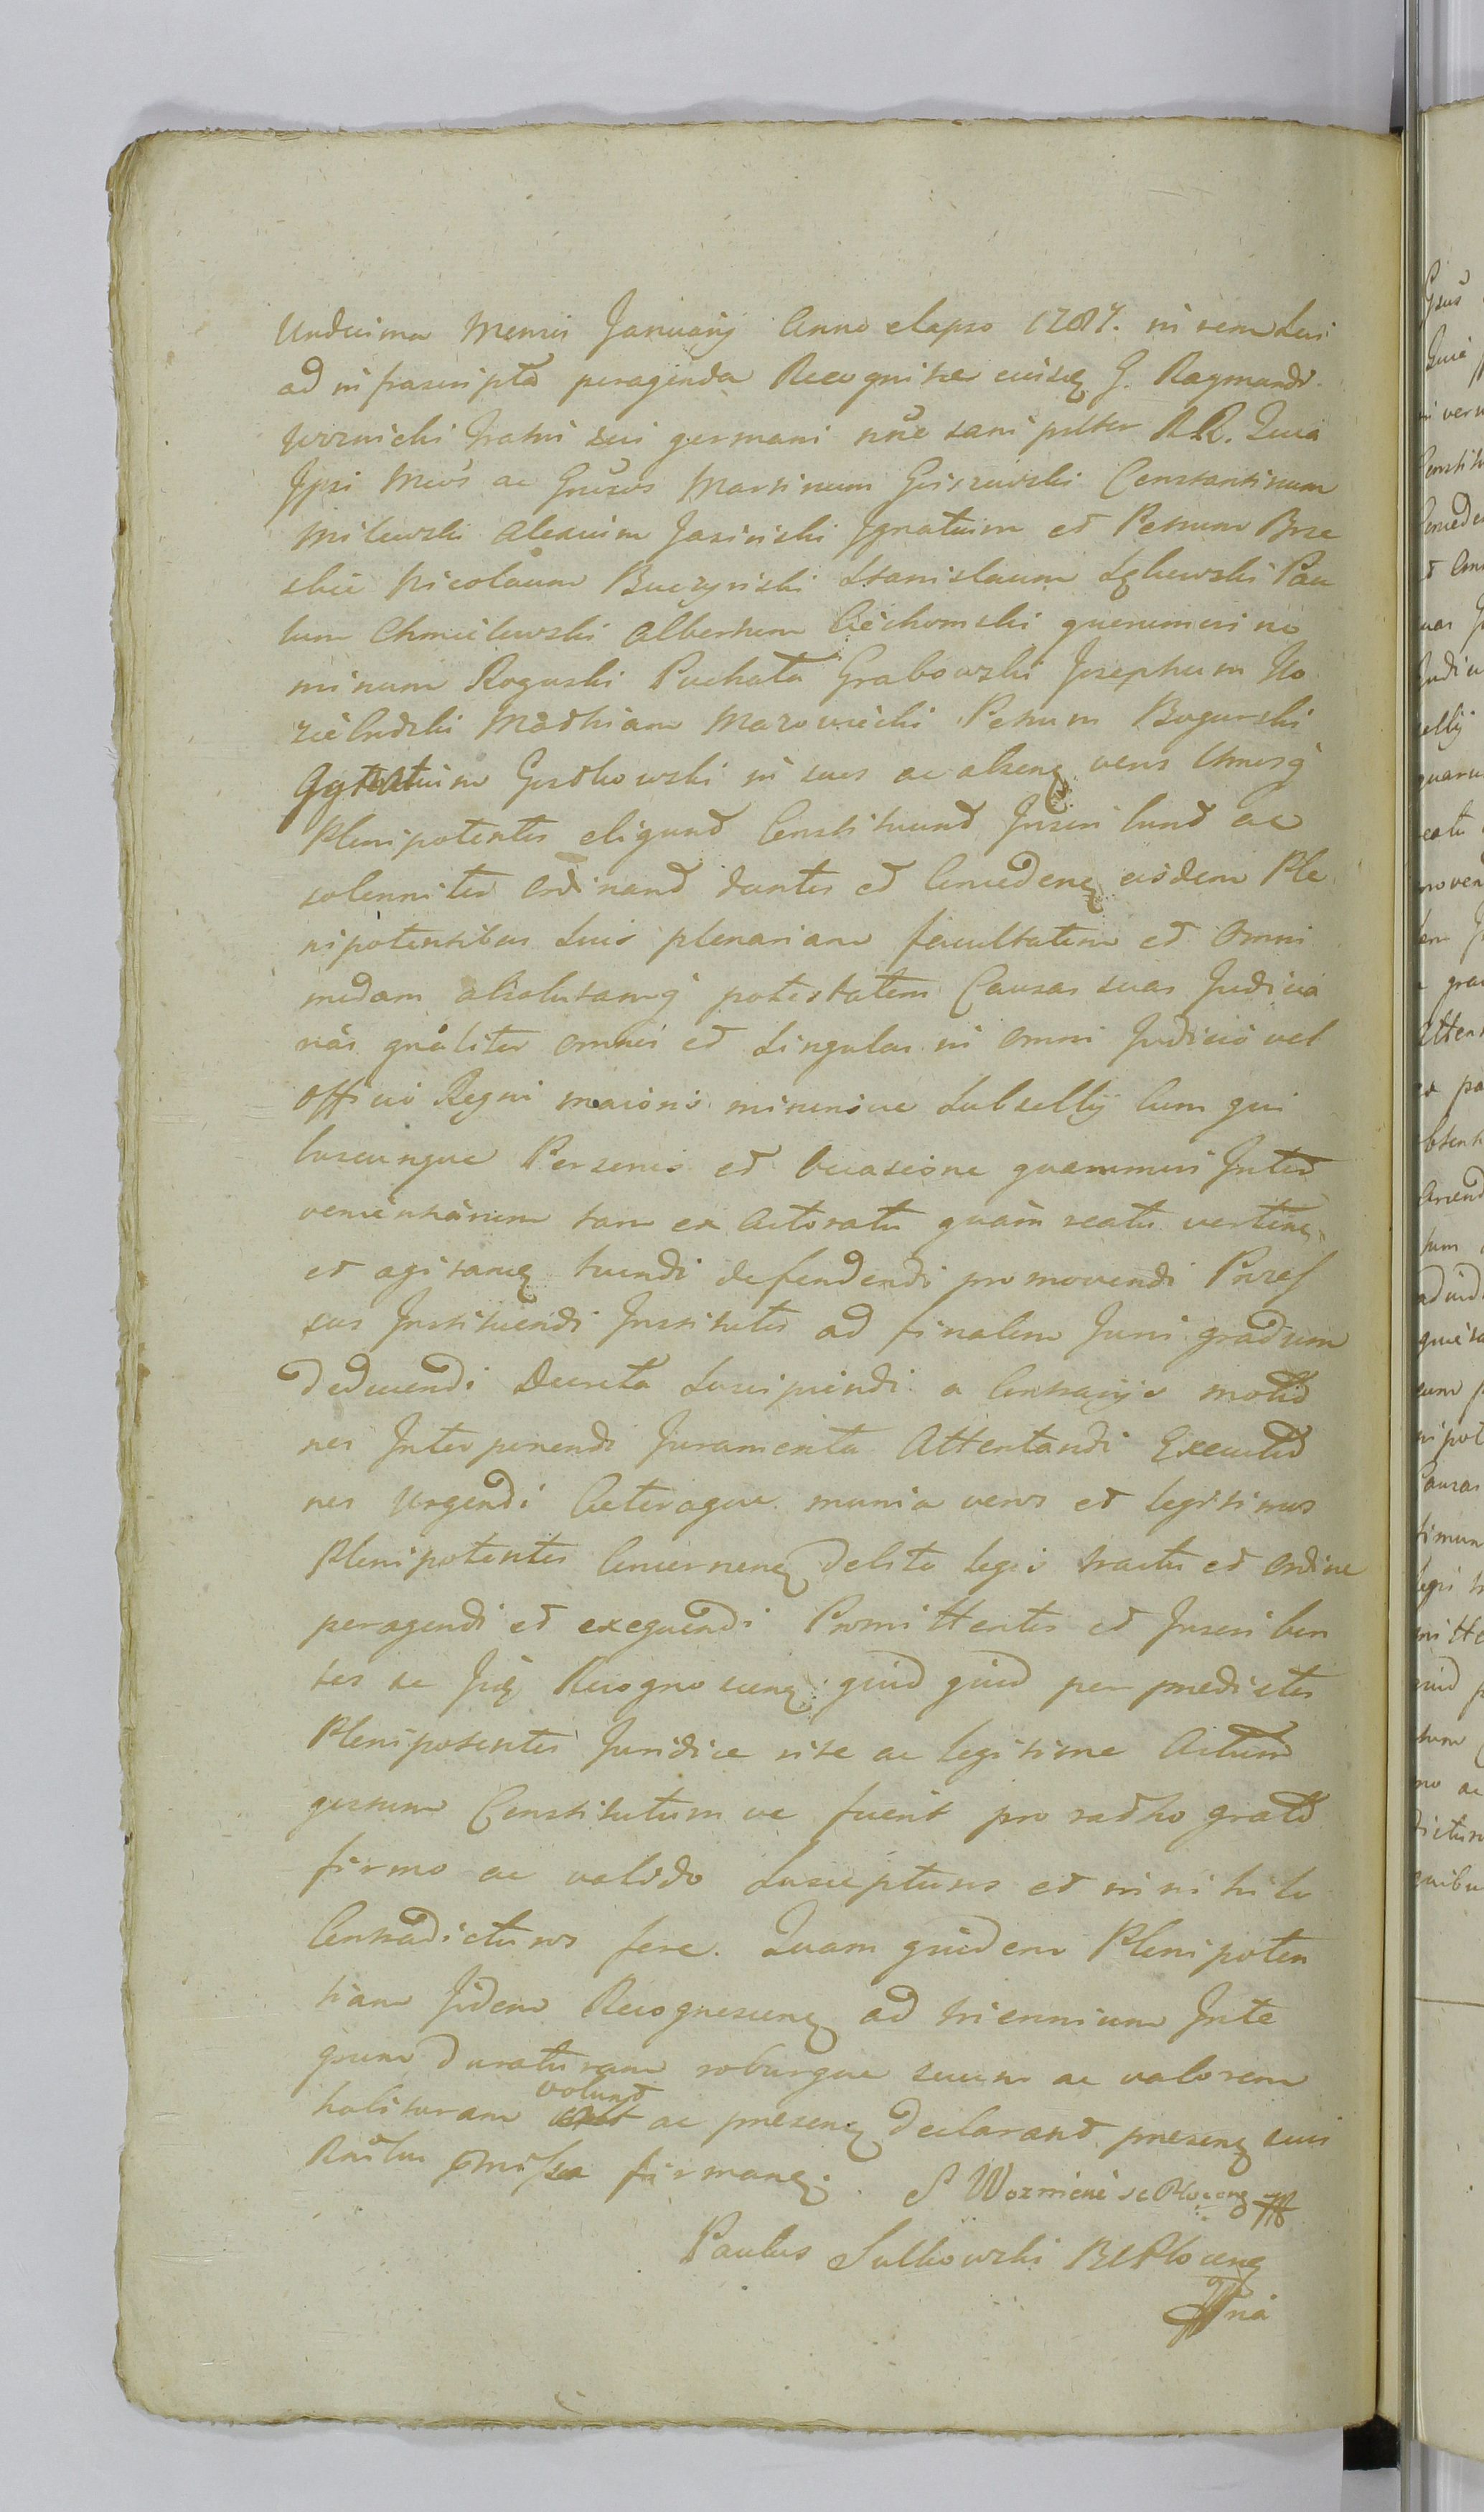 Undecima Mensis Januarij Anno elapso 1787. in rem sui
ad infrascripta peragenda Recognitae eiusq G. Raymundi
fratris sui germani nunc sani pntter RR. Quia
Ipsi Mcos ac Gnrosos Martinum Giszewski Constantinum
Milewski Alexium Jasiński Ignatium et Petrum Brze
skie Nicolaum Buczyński Stanislaum Pau
lum Chmielewski Albertum Cichomski quorumvis no
minum Roguski Puchała Grabowski Josephum Ko
ziebrodzki Mathiam Mazowiecki Petrum Bogurski
Ignatium Gostkowski in suos ac absenq veros Omnesq
Plenipotentes eligund Constituund Inscribund ac
solenniter Ordinand dantes et Concedenq eisdem Ple
nipotentibus suis plenariam facultatem et Omni
modam absolutamq potestatem Causas suas Judicia
rias gnaliter omnes et singulas in omni Judicio vel
Officio Regni maioris minorisve Subsellij Cum qui
buscunque Personis et Occasione quarumvis Inter
venientiarum tam ex Actoratu quam reatu vertenq
et agitanq tuendi defendendi promovendi Process
sus Instituendi Institutos ad finalem Juris gradum
deducendi Decreta Suscipiendi a Contrarijs motio
nes Interponendi Juramenta Attentandi Executio
nes Urgendi Ceteraque munia veros et legitimos
Plenipotentes Concernenq debito legis tractu et ordine
peragendi et exequendi Promittentes et Inscriben
tes se Ijdq Recognoscenq quid quid per predictos
Plenipotentes Juridice rite ac legitime Actum
gestum Constitutum ve fuerit pro ratho grato
firmo ac valido Suscepturos et in nihilo
Contradicturos fore. Quam quidem Plenipoten
tiam Iidem Recognoscenq ad triennium Inte
grum duraturam roburque suum ac valorem
habituram volund ac presenq declarand presenq suis
Rnibus pmissa firmanq. S Woznieni sc Plocenq mp
Paulus Sulkowski BC Plocenq